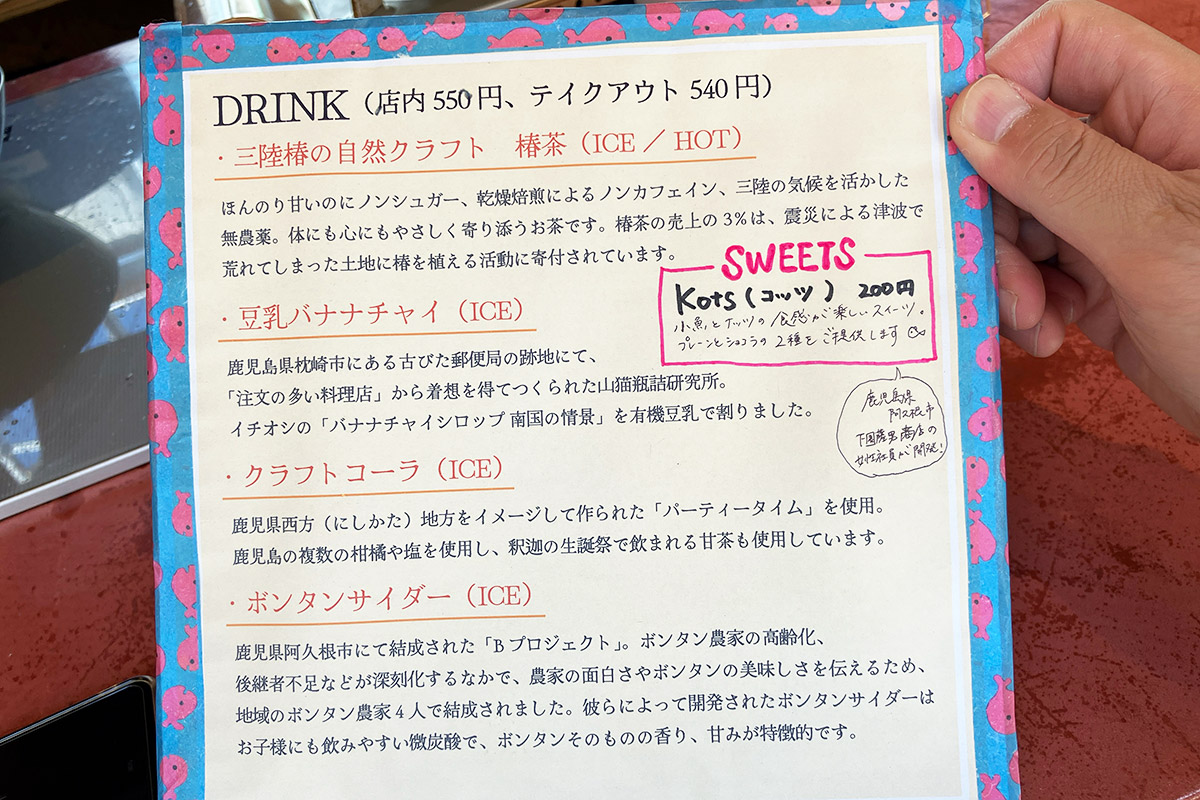 DRINK（店内 550 円、テイクアウト 540 円）
・三陸椿の自然クラフト　椿茶（ICE ／ HOT）
ほんのり甘いのにノンシュガー、乾燥焙煎によるノンカフェイン、三陸の気候を活かした
無農薬。体にも心にもやさしく寄り添うお茶です。椿茶の売上の 3％は、震災による津波で
荒れてしまった土地に椿を植える活動に寄付されています。
SWEETS
Kots（コッツ） 200円
小魚とナッツの食感が楽しいスイーツ。
プレーンとショコラの2種をご提供します
鹿児島県
阿久根市
下園薩男商店の
女性社員が開発！
・豆乳バナナチャイ（ICE）
鹿児島県枕崎市にある古びた郵便局の跡地にて、
「注文の多い料理店」から着想を得てつくられた山猫瓶詰研究所。
イチオシの「バナナチャイシロップ 南国の情景」を有機豆乳で割りました。
・クラフトコーラ（ICE）
鹿児県西方（にしかた）地方をイメージして作られた「パーティータイム」を使用。
鹿児島の複数の柑橘や塩を使用し、釈迦の生誕祭で飲まれる甘茶も使用しています。
・ボンタンサイダー（ICE）
鹿児県阿久根市にて結成された「B プロジェクト」。ボンタン農家の高齢化、
後継者不足などが深刻化するなかで、農家の面白さやボンタンの美味しさを伝えるため、
地域のボンタン農家 4 人で結成されました。彼らによって開発されたボンタンサイダーは
お子様にも飲みやすい微炭酸で、ボンタンそのものの香り、甘みが特徴的です。